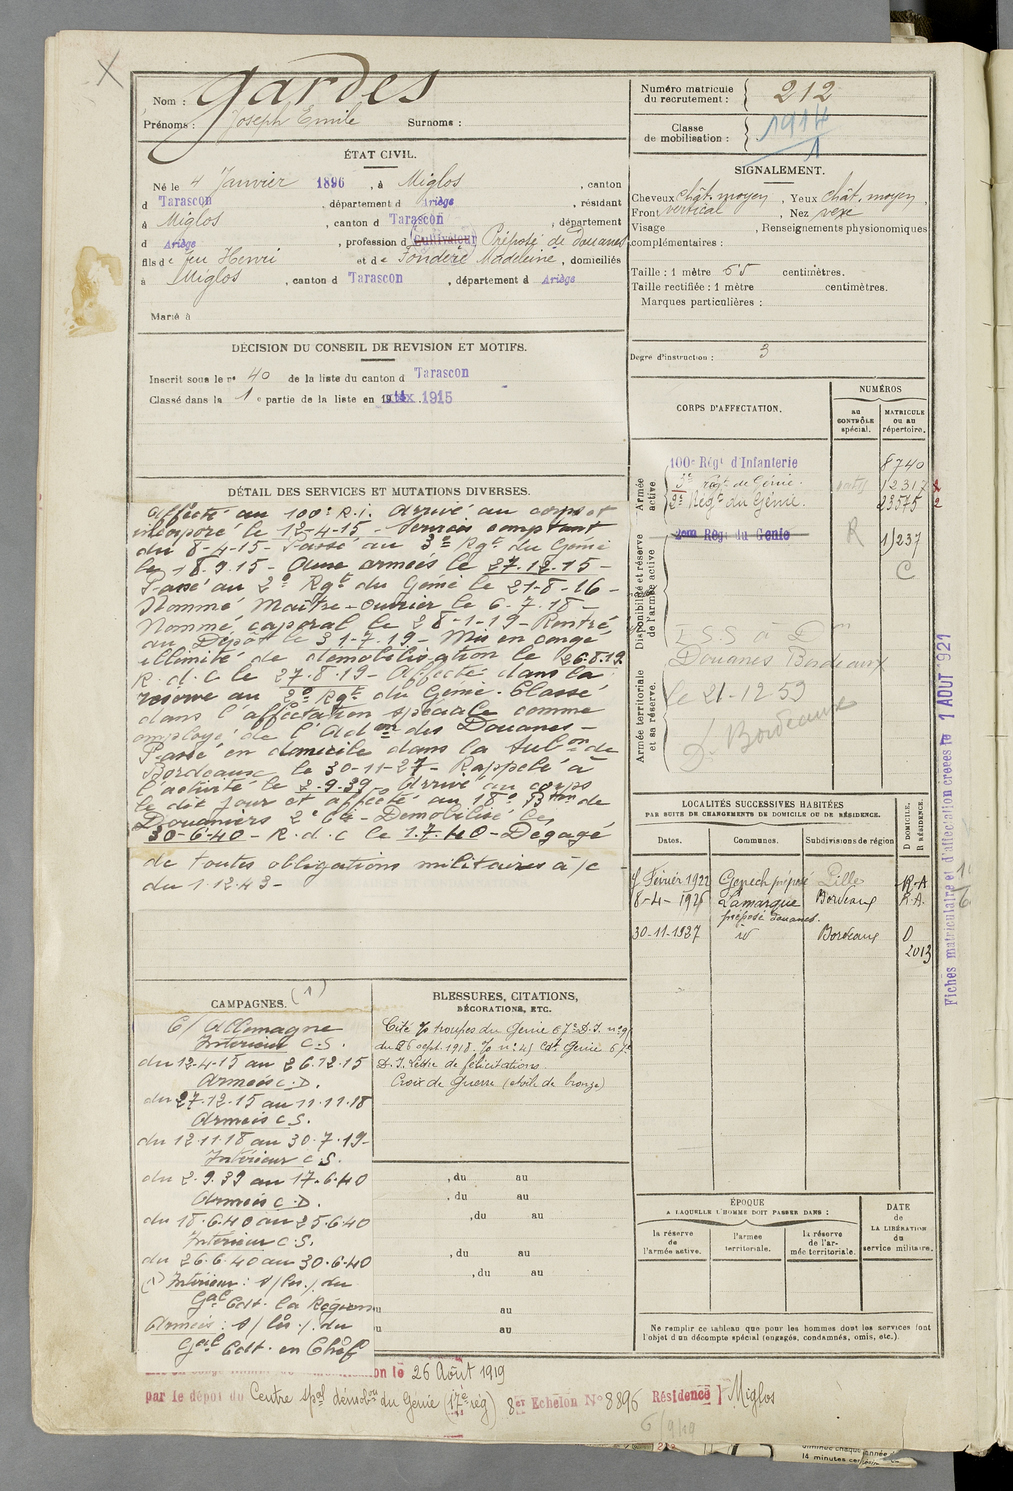 X
Nom : Gardes
Prénoms : Joseph Emile Surnoms :
Numéro matricule du recrutement : 212
Classe de mobilisation : 1914
1
ÉTAT CIVIL.
Né le 4 Janvier 1896, à Miglos, canton
d Tarascon, département d Ariège, résidant
à Miglos, canton d Tarascon, département
d Ariège, profession d Cultivateur Préposé de Douanes
fils de feu Henri et de Fondère Madeleine, domiciliés
à Miglos, canton d Tarascon, département d Ariège
Marié à
SIGNALEMENT.
Cheveux chât. moyen, Yeux chât. moyen,
Front vertical, Nez vexe
Visage , Renseignements physionomiques
complémentaires :
Taille : 1 mètre 65 centimètres.
Taille rectifiée : 1 mètre centimètres.
Marques particulières :
Degré d'instruction : 3
DÉCISION DU CONSEIL DE REVISION ET MOTIFS.
Inscrit sous le n° 40 de la liste du canton d Tarascon
Classé dans la 1e partie de la liste en 1915
DÉTAIL DES SERVICES ET MUTATIONS DIVERSES.
Affecté au 100e R.I. Arrivé au corps et
incorporé le 12-4-15 - Services comptant
du 8-4-15 - Passé au 3e Rgt du Génie
le 18.9.15 - Aux armées le 27.12.15 -
Passé au 2e Rgt du Génie le 21-8-16 -
Nommé Maître-ouvrier le 6-7-18 -
Nommé caporal le 28-1-19 - Rentré
au Dépôt le 31-7-19 - Mis en congé
illimité de démobilisation le 26.8.19
R.d.c le 27.8.19 - Affecté dans la
réserve au 2e Rgt du Génie. Classé
dans l'affectation spéciale comme
employé de l'Adon des Douanes -
Passé en domicile dans la Subon de
Bordeaux le 30-11-27 - Rappelé à
l'activité le 2.9.39 - Arrivé au corps
le dit jour et affecté au 18e Bton de
Douaniers 2e Cie - Démobilisé le
30-6-40 - R.d.c le 1.7.40 - Dégagé
de toutes obligations militaires à/c
du 1.12.43 -
CORPS D'AFFECTATION.
NUMÉROS
au CONTRÔLE spécial.
MATRICULE ou au répertoire.
Armée active
100e Régt d'Infanterie 8740
3e régt de Génie. 12317
2e Régt du Génie. 23575 2
Disponibilité et réserve de l'armée active
2ème Régt du Génie R 1)237
C
E.S.S à Don
Douanes Bordeaux
Armée territoriale et sa réserve.
le 21-12-59
Bordeaux
LOCALITÉS SUCCESSIVES HABITÉES
PAR SUITE DE CHANGEMENTS DE DOMICILE OU DE RÉSIDENCE.
Dates. Communes. Subdivisions de région D DOMICILE. R RÉSIDENCE.
Février 1922 Genech préposé Lille R-A
8-4-1926 Lamarque Bordeaux R.A.
préposé douanes.
30-11-1927 id Bordeaux D
2013
Fiches matriculaire et d'affectation créées le 1 AOUT 1921
CAMPAGNES. (1)
C/ Allemagne
Intérieur C.S.
du 12-4-15 au 26.12.15
Armées C.D.
du 27.12.15 au 11.11.18
Armées C.S.
du 12.11.18 au 30.7.19 -
Intérieur C.S.
du 2.9.39 au 17.6.40
Armées C.D.
du 18.6.40 au 25.6.40
Intérieur C.S.
du 26.6.40 au 30.6.40
(1) Intérieur : du
Gal Cdt. la Région
Armées : du
Gal Cdt. en Chef
BLESSURES, CITATIONS, DÉCORATIONS, ETC.
Cité troupes du Génie 67e D.I. n°9
du 26 sept. 1918. n° 41 Cdt Génie 67e
D.I. Lettre de félicitations.
Croix de Guerre (étoile de bronze)
, du au
, du au
, du au
, du au
, du au
au
au
ÉPOQUE
A LAQUELLE L'HOMME DOIT PASSER DANS :
la réserve de l'armée active.
l'armée territoriale.
la réserve de l'armée territoriale.
DATE de LA LIBÉRATION du service militaire.
Ne remplir ce tableau que pour les hommes dont les services font
l'objet d'un décompte spécial (engagés, condamnés, omis, etc.).
on le 26 Août 1919
par le dépôt du Centre spal démobon du Génie (17e rég) 8er Echelon N° 8896 Résidence Miglos
6/9/19
14 minutes